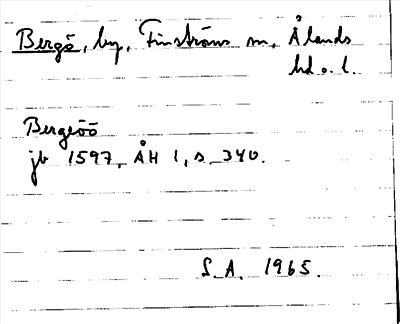 Bergö, by, Finströms sn, Ålands
hd o. l.
Bergeöö
jb 1597, ÅH 1, s. 340.
S. A. 1965.